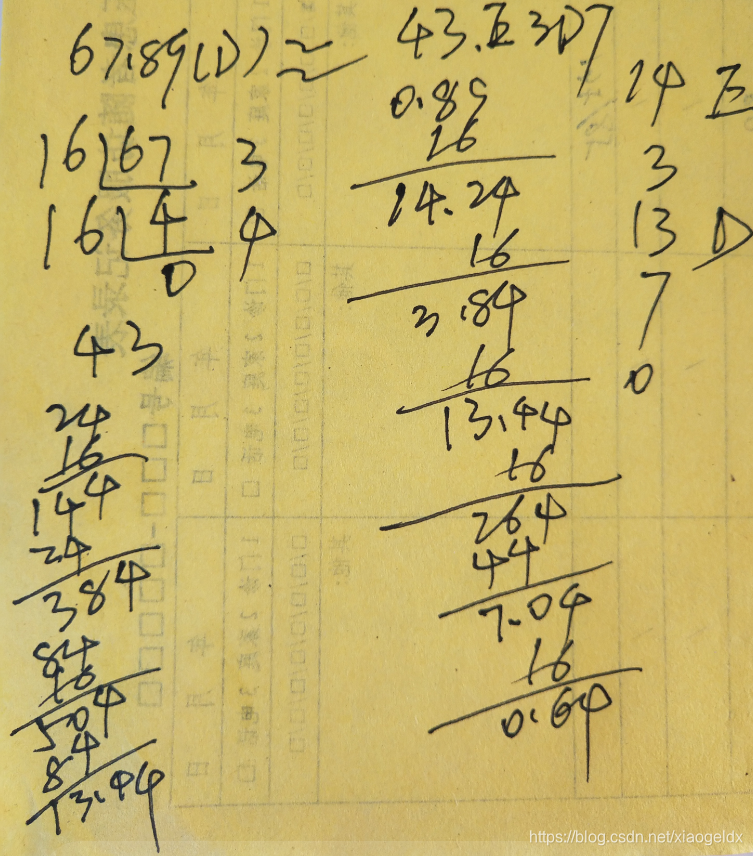 67.89(D) ≈ 43.E3D7
16 67 3
16 4 4
0
43
24
16
144
24
384
84
16
504
84
13.44
0.89
16
14.24
16
3.84
16
13.44
16
264
44
7.04
16
0.64
14 E
3
13 D
7
0
https://blog.csdn.net/xiaogeldx